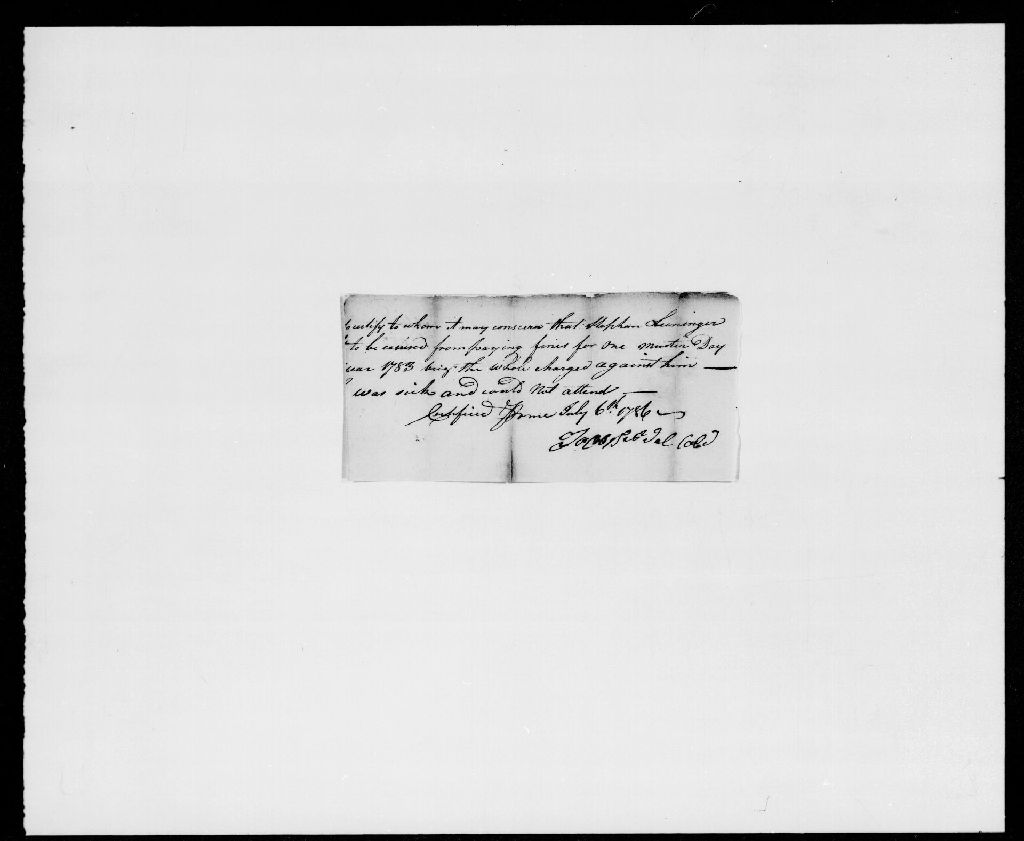 certify to whom it may conscern that Stephen
to be excused from paying fines for one muster Day
year 1783 being the whole charged against him —
was sick and could not attend —
Certified by me July 6th 1786